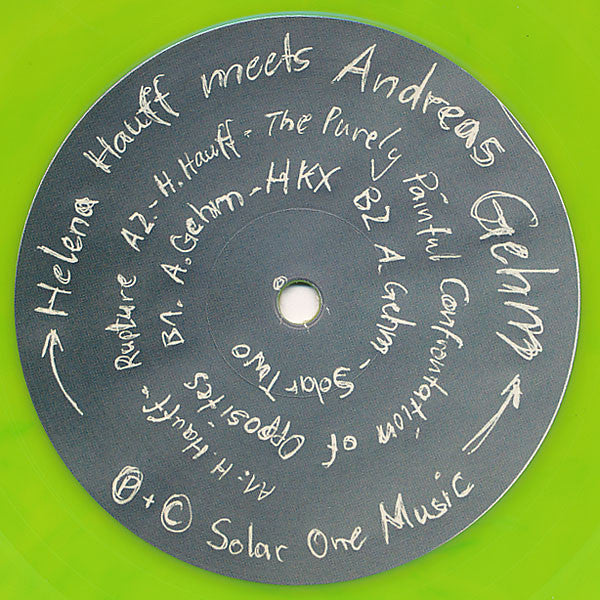 → Helena Hauff meets Andreas Gehm ←
A1: H. Hauff - Rupture A2.- H. Hauff - The Purely Painful Confrontation of Opposi-tes
B1. A. Gehm - HKX B2 A. Gehm - Solar Two
Ⓟ + © Solar One Music